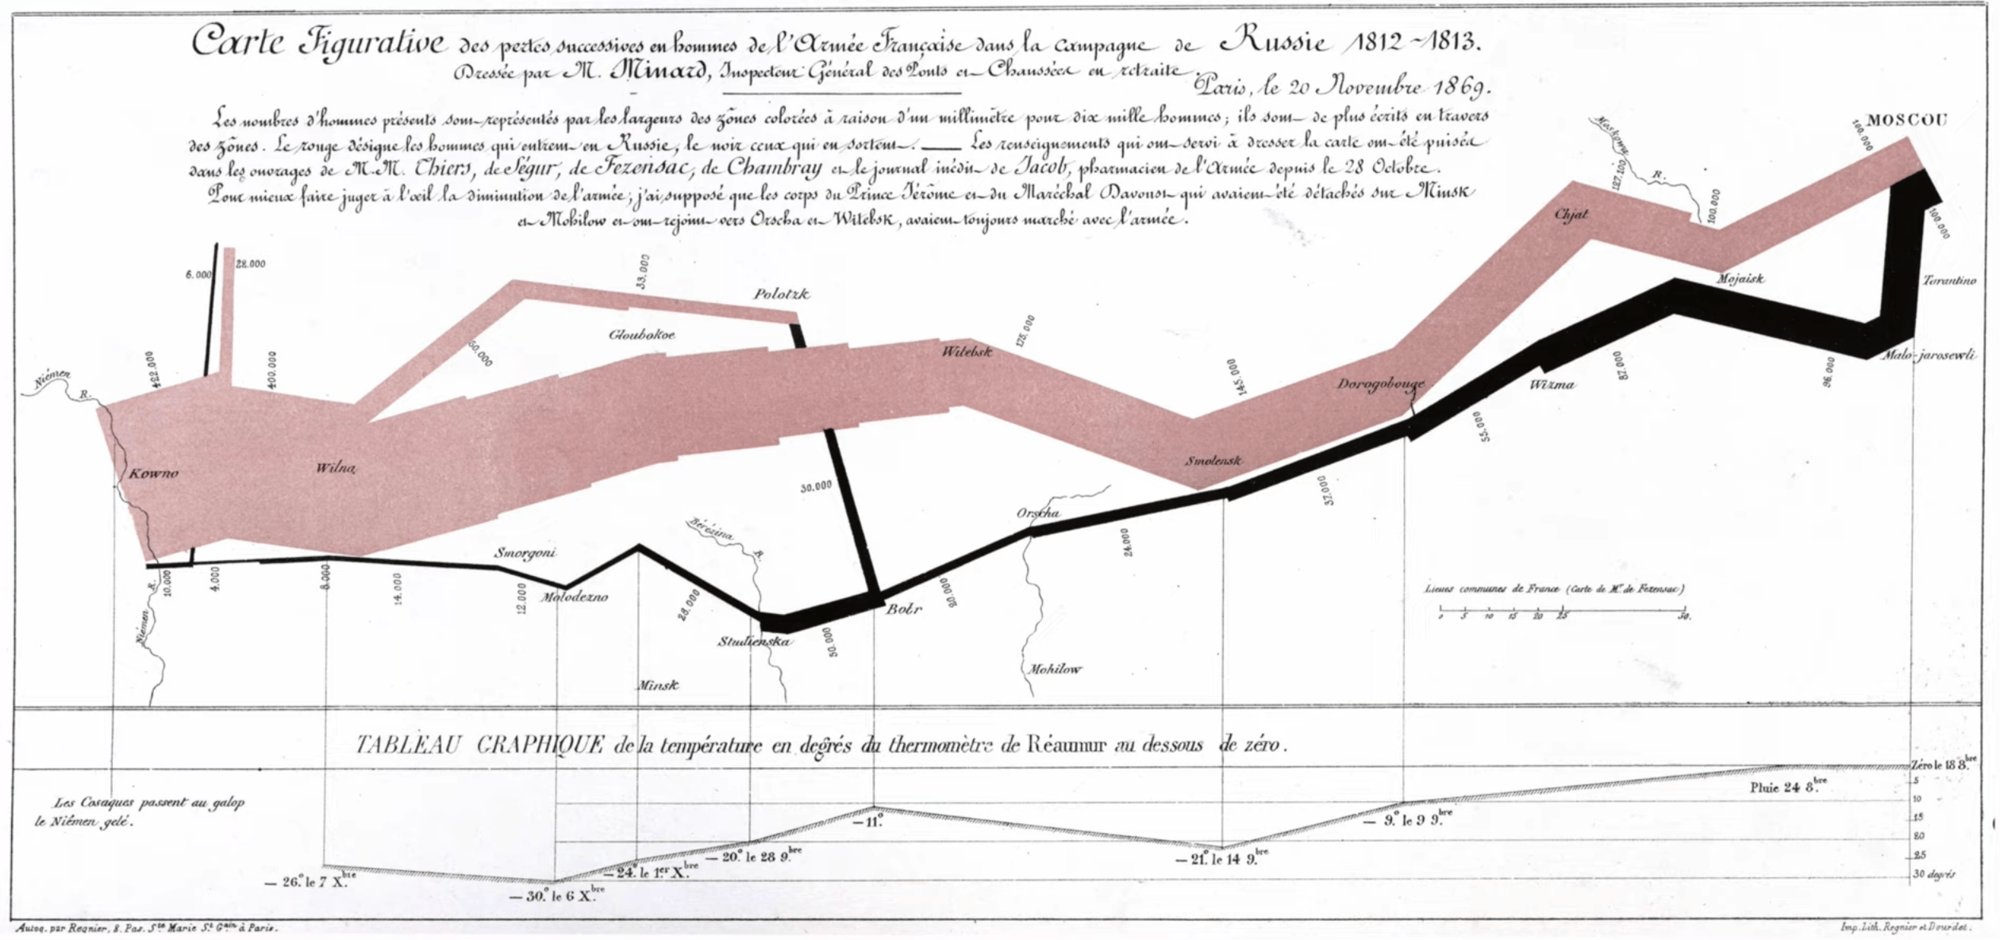 Carte Figurative des pertes successives en hommes de l'Armée Française dans la campagne de Russie 1812-1813.
Dressée par M. Minard, Inspecteur Général des Ponts et Chaussées en retraite.
Paris, le 20 Novembre 1869.
Les nombres d'hommes présents sont représentés par les largeurs des zônes colorées à raison d'un millimètre pour dix mille hommes; ils sont de plus écrits en travers
des zônes. Le rouge désigne les hommes qui entrent en Russie, le noir ceux qui en sortent. — Les renseignements qui ont servi à dresser la carte ont été puisés
dans les ouvrages de M.M. Thiers, de Ségur, de Fezensac, de Chambray et le journal inédit de Jacob, pharmacien de l'Armée depuis le 28 Octobre.
Pour mieux faire juger à l'œil la diminution de l'armée, j'ai supposé que les corps du Prince Jérôme et du Maréchal Davoust qui avaient été détachés sur Minsk
et Mohilow et ont rejoint vers Orscha et Witebsk, avaient toujours marché avec l'armée.
MOSCOU
100.000
Moskowa R.
127.100
100.000
Chjat
Mojaisk
100.000
Tarantino
Malo-jarosewli
96.000
87.000
Wizma
55.000
Dorogobouge
145.000
Smolensk
37.000
24.000
Orscha
Mohilow
175.000
Witebsk
Polotzk
33.000
Gloubokoe
60.000
28.000
6.000
400.000
422.000
Niémen R.
Kowno
Wilna
30.000
Bérézina R.
Smorgoni
Molodezno
10.000
4.000
8.000
14.000
12.000
28.000
Studienska
50.000
Bobr
20.000
Minsk
Niémen R.
Lieues communes de France (Carte de M. de Fezensac)
0 5 10 15 20 25 50.
TABLEAU GRAPHIQUE de la température en degrés du thermomètre de Réaumur au dessous de zéro.
Les Cosaques passent au galop
le Niémen gelé.
Zéro le 18 8.bre
5
10
15
20
25
30 degrés
Pluie 24 8.bre
— 9.° le 9 9.bre
— 21.° le 14 9.bre
— 11.°
— 20.° le 28 9.bre
— 24.° le 1.er X.bre
— 30.° le 6 X.bre
— 26.° le 7 X.bre
Autog. par Regnier, 8. Pas. S.te Marie S.t G.ain à Paris.
Imp. Lith. Regnier et Dourdet.